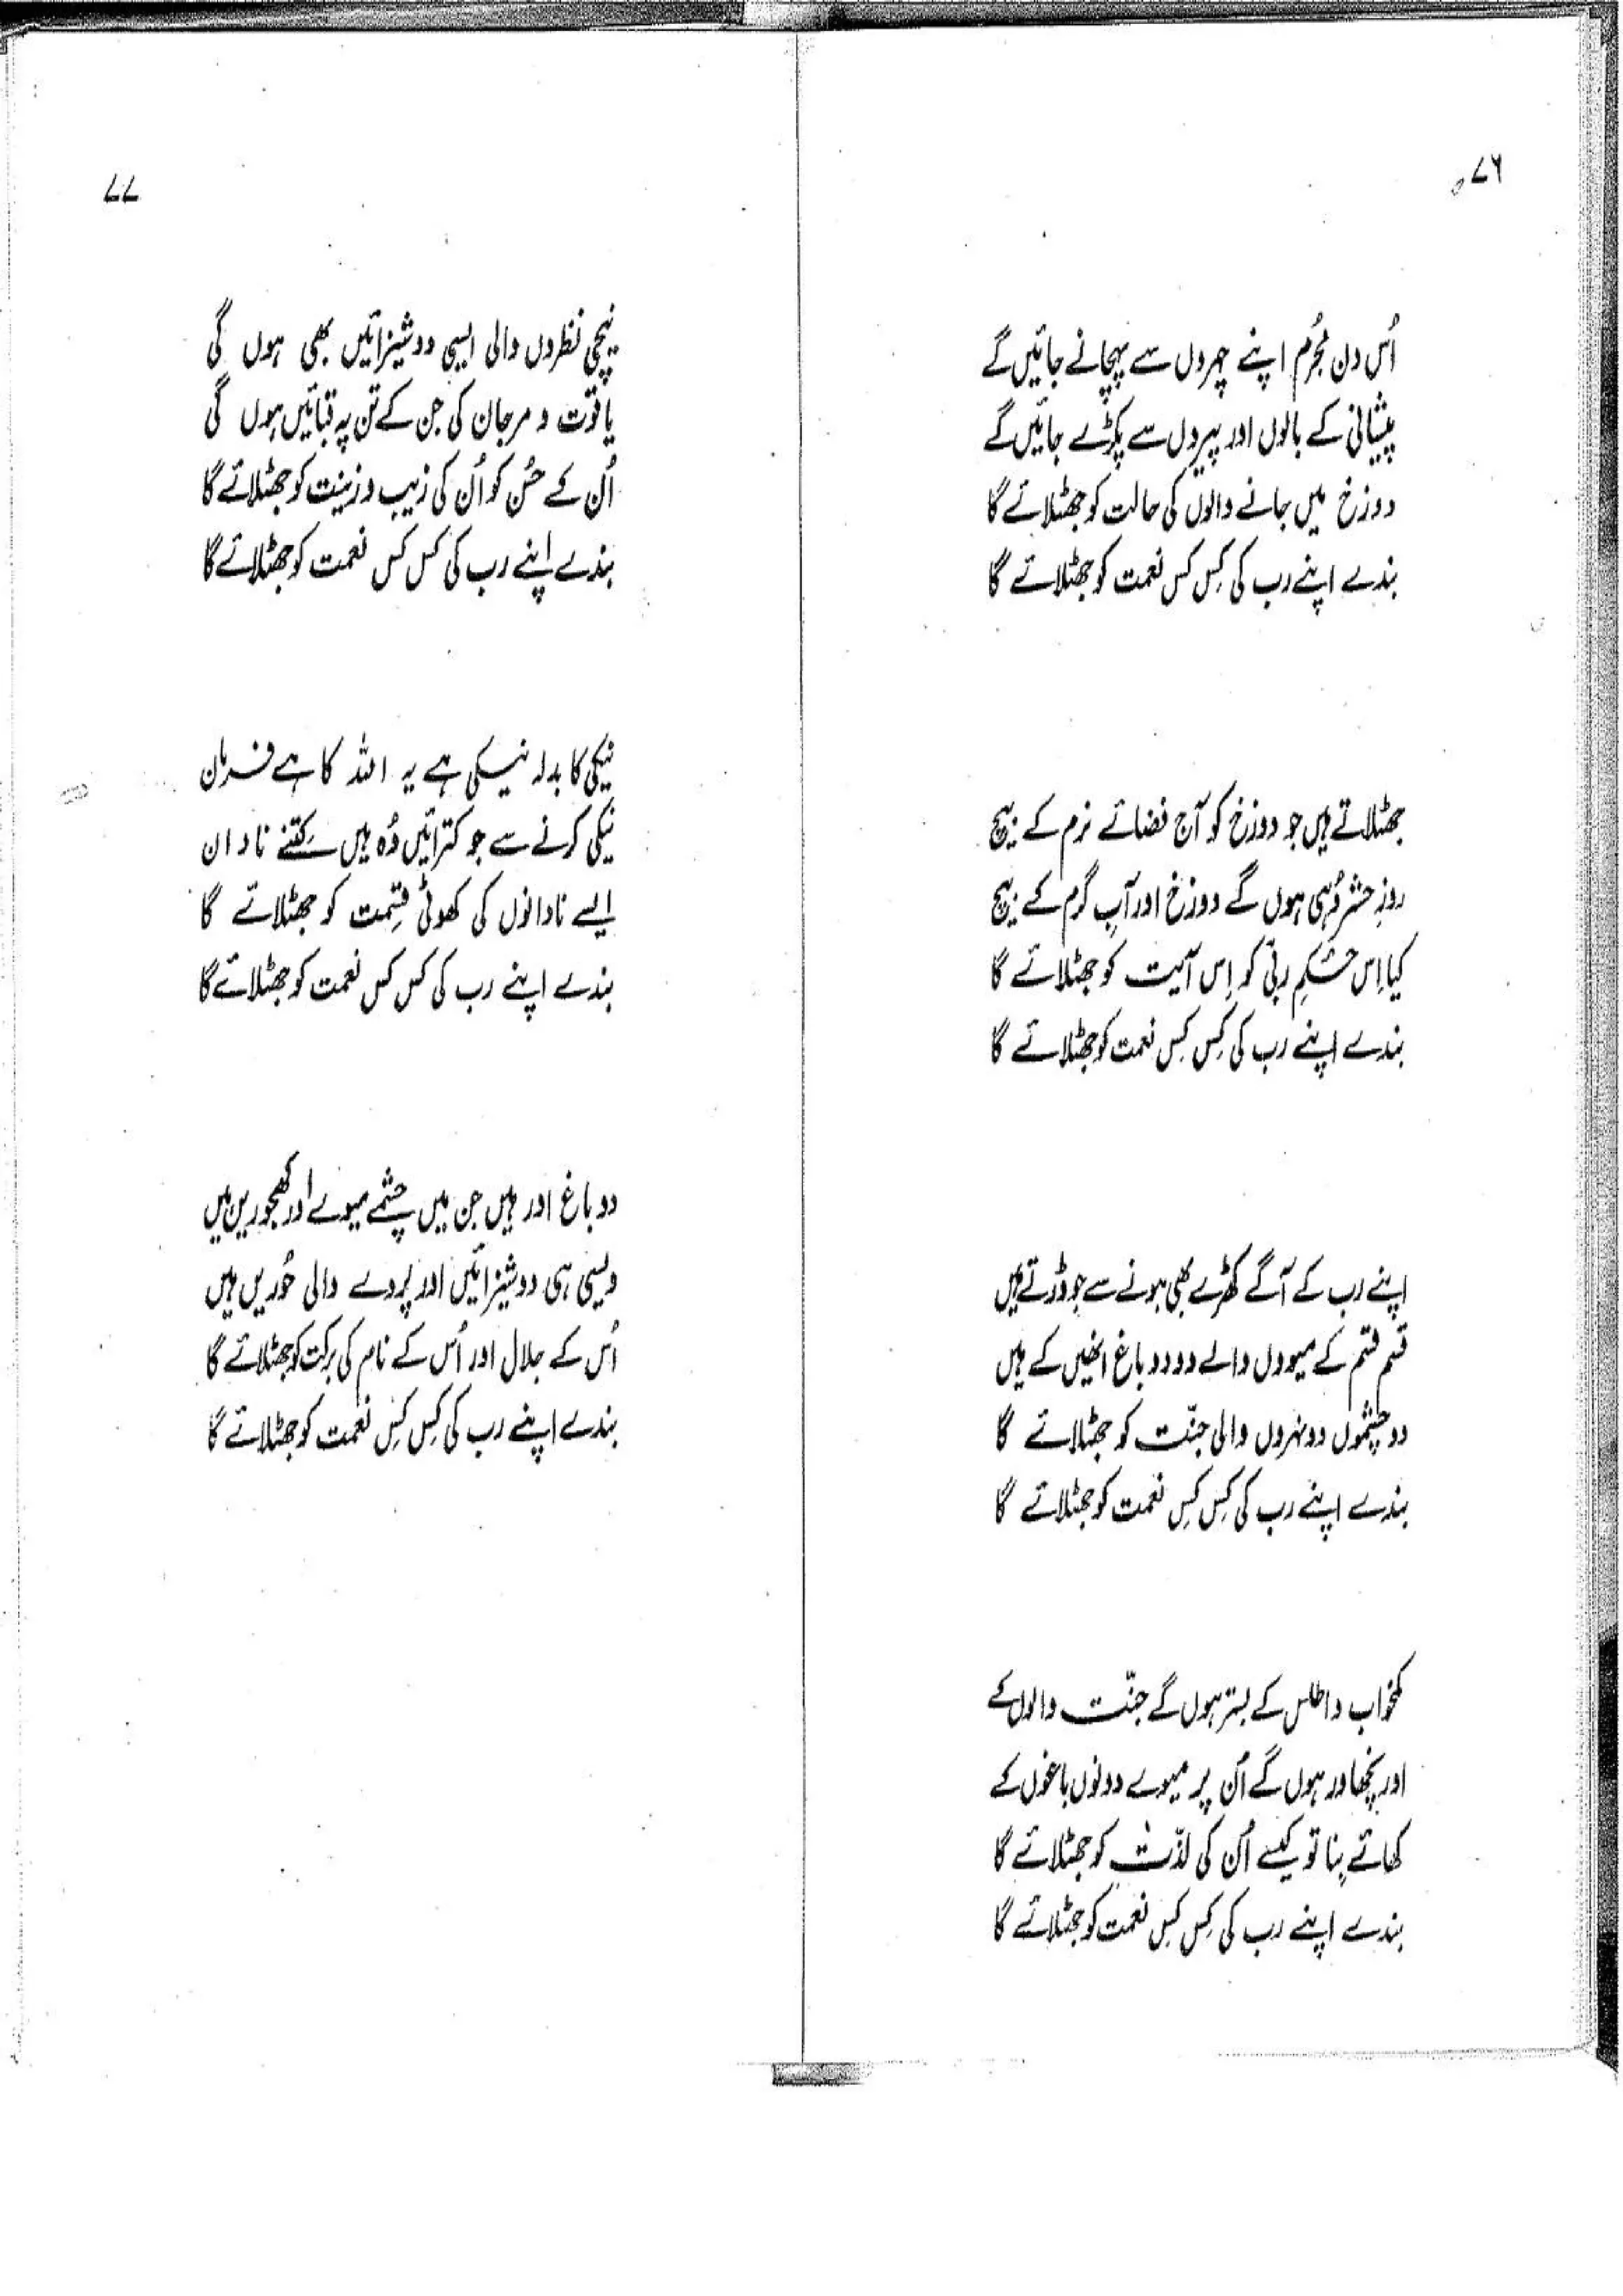 ۷۶
اُس دن مُجرم اپنے چہروں سے پہچانے جائیں گے
پیشانی کے بالوں اور پیروں سے پکڑے جائیں گے
دوزخ میں جانے والوں کی حالت کو جھٹلائے گا
بندے اپنے رب کی کِس کس نعمت کو جھٹلائے گا
جھٹلاتے ہیں جو دوزخ کو آج فضائے نرم کے بیچ
روزِ حشر وُہی ہوں گے دوزخ اور آبِ گرم کے بیچ
کیا اِس حکمِ ربّی کو اِس آیت کو جھٹلائے گا
بندے اپنے رب کی کِس کِس نعمت کو جھٹلائے گا
اپنے رب کے آگے کھڑے بھی ہونے سے جو ڈرتے ہیں
قسم قسم کے میووں والے دو دو باغ انھیں کے ہیں
دو چشموں دو نہروں والی جنّت کو جھٹلائے گا
بندے اپنے رب کی کِس کِس نعمت کو جھٹلائے گا
کمخواب و اطلس کے بستر ہوں گے جنّت والوں کے
اور نچھاور ہوں گے اُن پر میوے دونوں باغوں کے
کھائے بِنا تو کیسے اُن کی لذّت کو جھٹلائے گا
بندے اپنے رب کی کِس کِس نعمت کو جھٹلائے گا
۷۷
نیچی نظروں والی ایسی دوشیزائیں بھی ہوں گی
یاقوت و مرجان کی جن کے تن پہ قبائیں ہوں گی
اُن کے حُسن کو اُن کی زیب و زینت کو جھٹلائے گا
بندے اپنے رب کی کس کس نعمت کو جھٹلائے گا
نیکی کا بدلہ نیکی ہے یہ اللہ کا ہے فرمان
نیکی کرنے سے جو کترائیں وُہ ہیں کِتنے نادان
ایسے نادانوں کی کھوٹی قِسمت کو جھٹلائے گا
بندے اپنے رب کی کس کس نعمت کو جھٹلائے گا
دو باغ اور ہیں جن میں چشمے میوے اور کھجوریں ہیں
ویسی ہی دوشیزائیں اور پردے والی حُوریں ہیں
اُس کے جلال اور اُس کے نام کی برکت کو جھٹلائے گا
بندے اپنے رب کی کِس کِس نعمت کو جھٹلائے گا